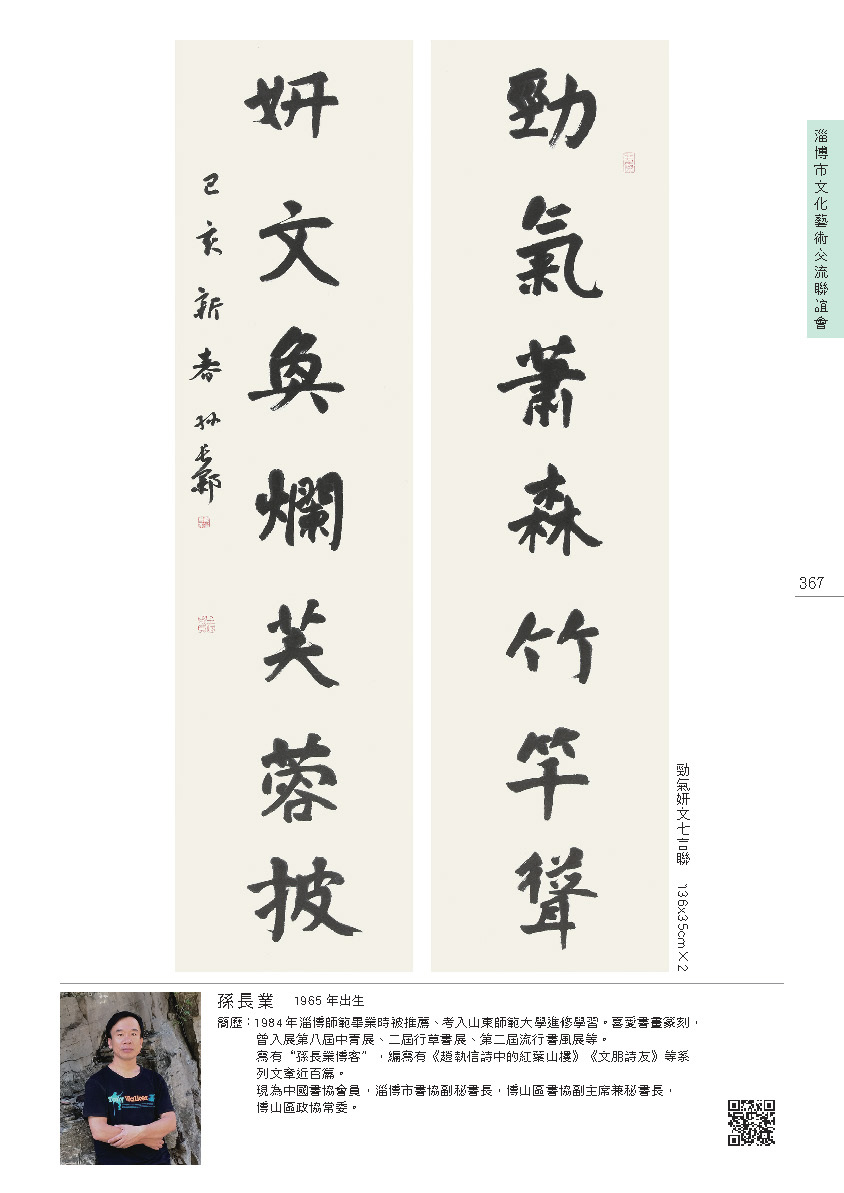 勁氣蕭森竹竿聳
妍文奐爛芙蓉披
己亥新春孫長鄴
淄博市文化藝術交流聯誼會
367
勁氣妍文七言聯 136x35cm×2
孫長業 1965 年出生
簡歷：1984 年淄博師範畢業時被推薦、考入山東師範大學進修學習。喜愛書畫篆刻，
曾入展第八屆中青展、二屆行草書展、第二屆流行書風展等。
寫有“孫長業博客”，編寫有《趙執信詩中的紅葉山樓》《文朋詩友》等系
列文章近百篇。
現為中國書協會員，淄博市書協副秘書長，博山區書協副主席兼秘書長，
博山區政協常委。